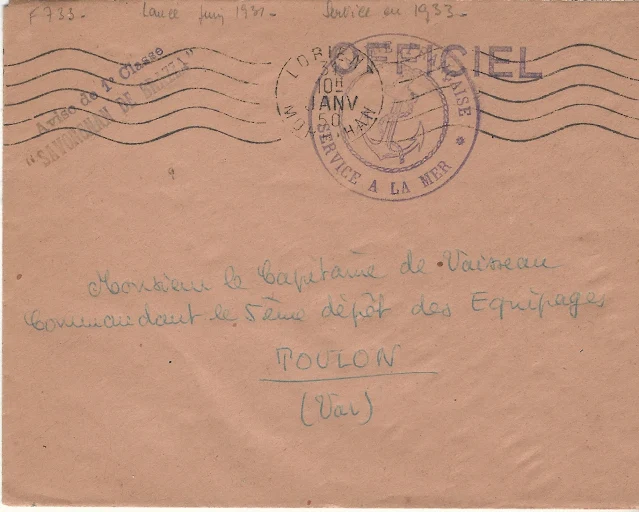 F733- Lancé juin 1931- Service en 1933-
Aviso de 1e Classe
"SAVORGNAN DE BRAZZA"
OFFICIEL
LORIENT
31
10H
JANV
50
MORBIHAN
SERVICE A LA MER *
Monsieur le Capitaine de Vaisseau
Commandant le 5ème dépôt des Equipages
TOULON
(Var)